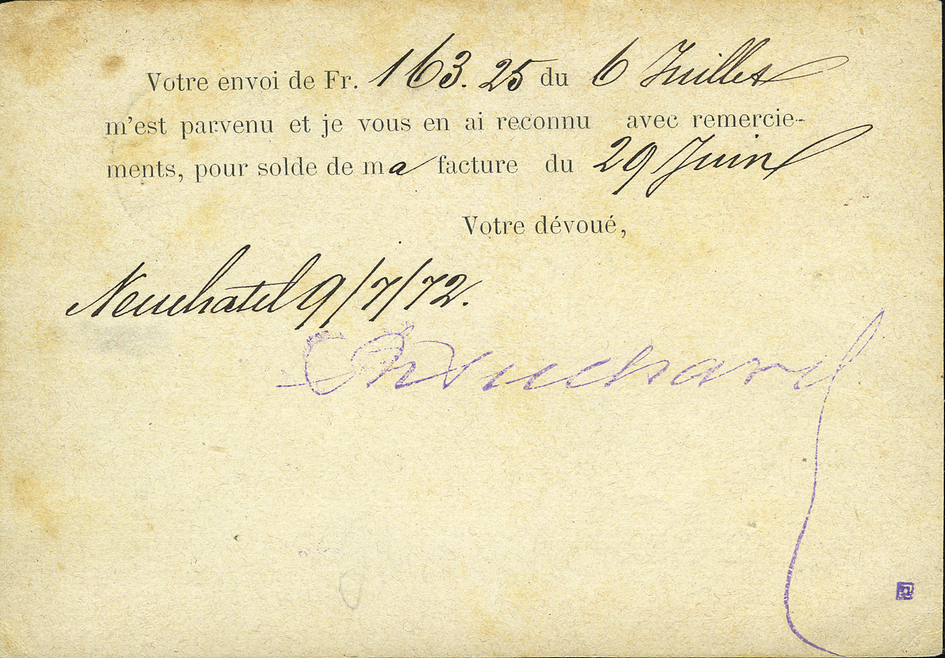 Votre envoi de Fr. 163.25 du 6 Juillet
m'est parvenu et je vous en ai reconnu avec remercie-
ments, pour solde de ma facture du 29 Juin
Votre dévoué,
Neuchatel 9/7/72.
Ph Suchard